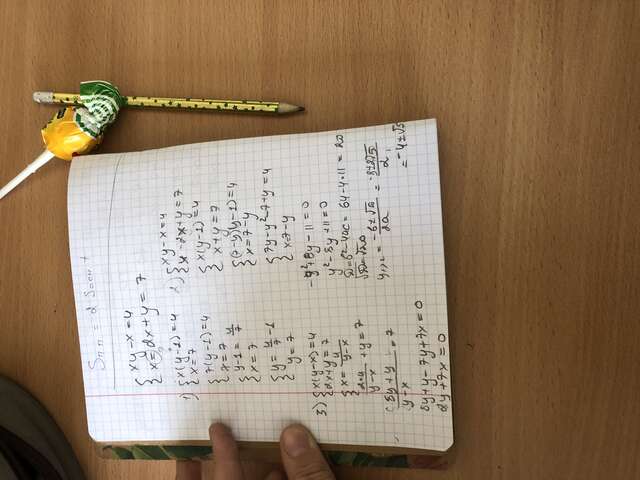 Sпп = 2 Sосн +
{ xy-x=4
{ x=2x+y=7
1) { x(y-1)=4
{ x=7
{ 7(y-1)=4
{ x=7
{ y-1=4/7
{ x=7
{ y=4/7-1
{ y=7
2) { xy-x=4
{ x-2x+y=7
{ x(y-1)=4
{ x+y=7
{ (7-y)(y-1)=4
{ x=7-y
{ 7y-y²-7+y=4
{ x=7-y
-y²+8y-11=0
y²-8y+11=0
D=b²-4ac=64-4·11=20
√D=√20
y₁,₂=(-b±√D)/2a=(-8±2√5)/2
=-4±√5
3) { x(y-x)=4
{ 2x+y=7
{ x=4/(y-x)
{ 2·4/(y-x)+y=7
(8y+y)/(y-x)=7
8y+y-7y+7x=0
2y+7x=0